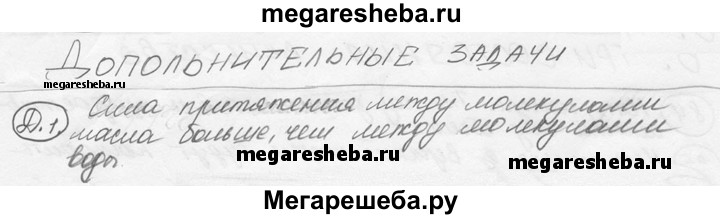 megaresheba.ru
ДОПОЛЬНИТЕЛЬНЫЕ ЗАДАЧИ
megaresheba.ru megaresheba.ru
Д.1. Сила притяжения между молекулами
масла больше, чем между молекулами
воды.
megaresheba.ru megaresheba.ru
Мегарешеба.ру